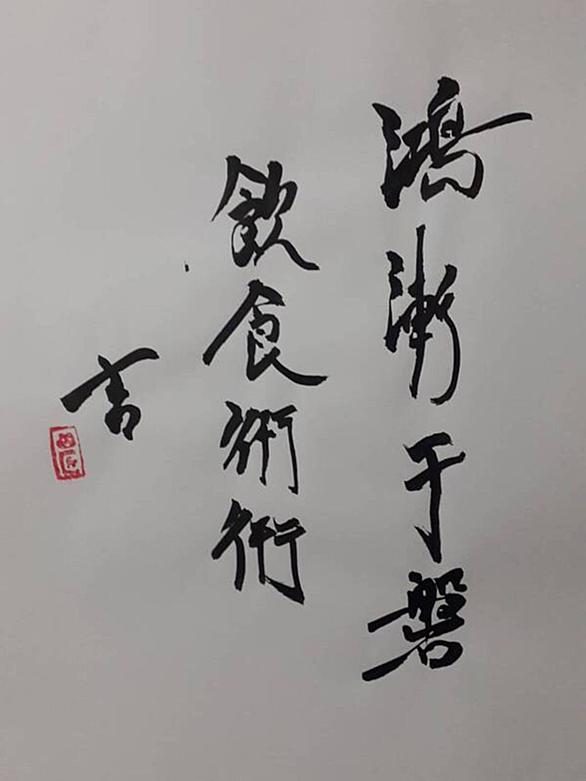 鴻漸于磐
飲食衎衎
吉